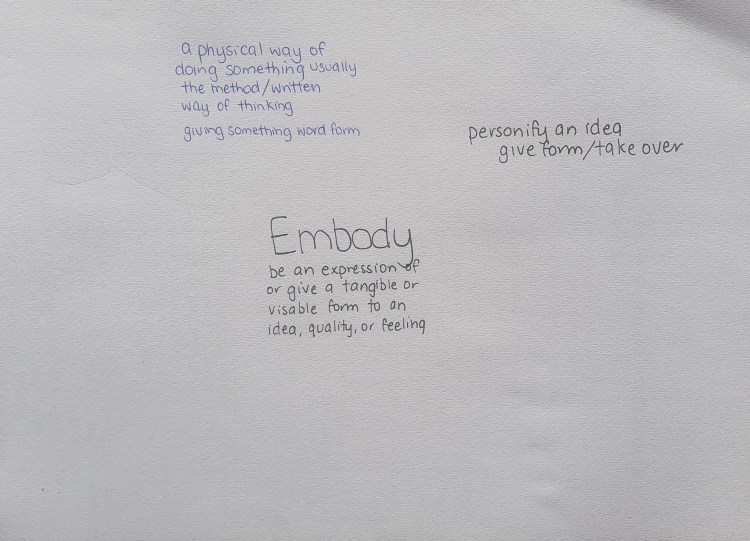 a physical way of
doing something usually
the method/written
way of thinking
giving something word form
personify an idea
give form/take over
Embody
be an expression of
or give a tangible or
visable form to an
idea, quality, or feeling